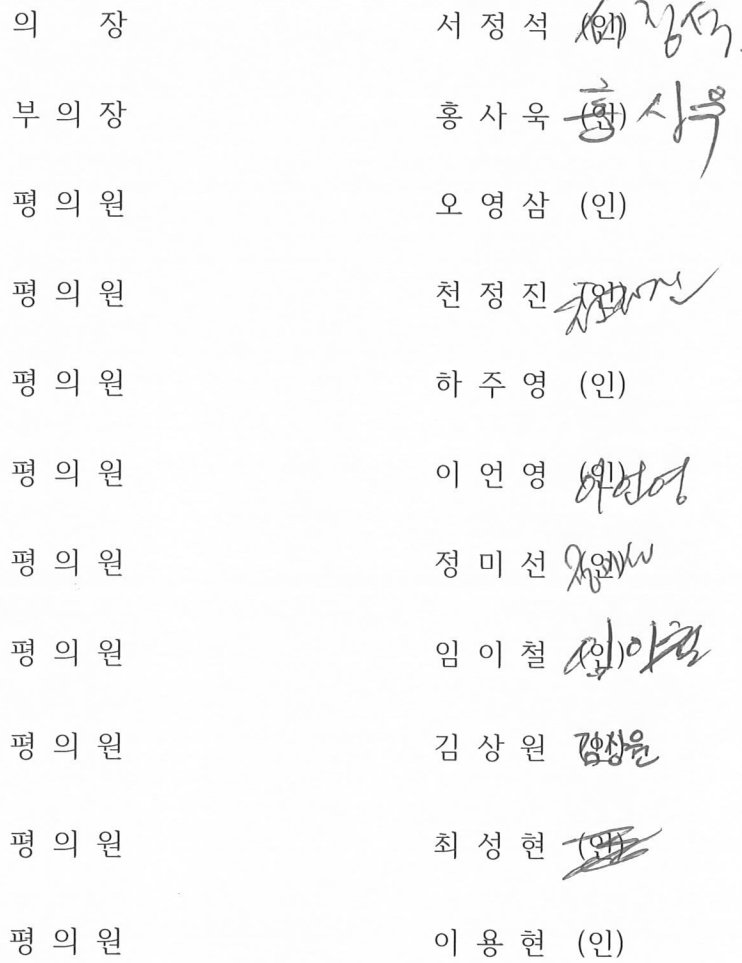 의 장 서 정 석 (인) 서정석
부 의 장 홍 사 욱 (인) 홍사욱
평 의 원 오 영 삼 (인)
평 의 원 천 정 진 (인) 천정진
평 의 원 하 주 영 (인)
평 의 원 이 언 영 (인) 이언영
평 의 원 정 미 선 (인) 정미선
평 의 원 임 이 철 (인) 임이철
평 의 원 김 상 원 (인) 김상원
평 의 원 최 성 현 (인)
평 의 원 이 용 현 (인)